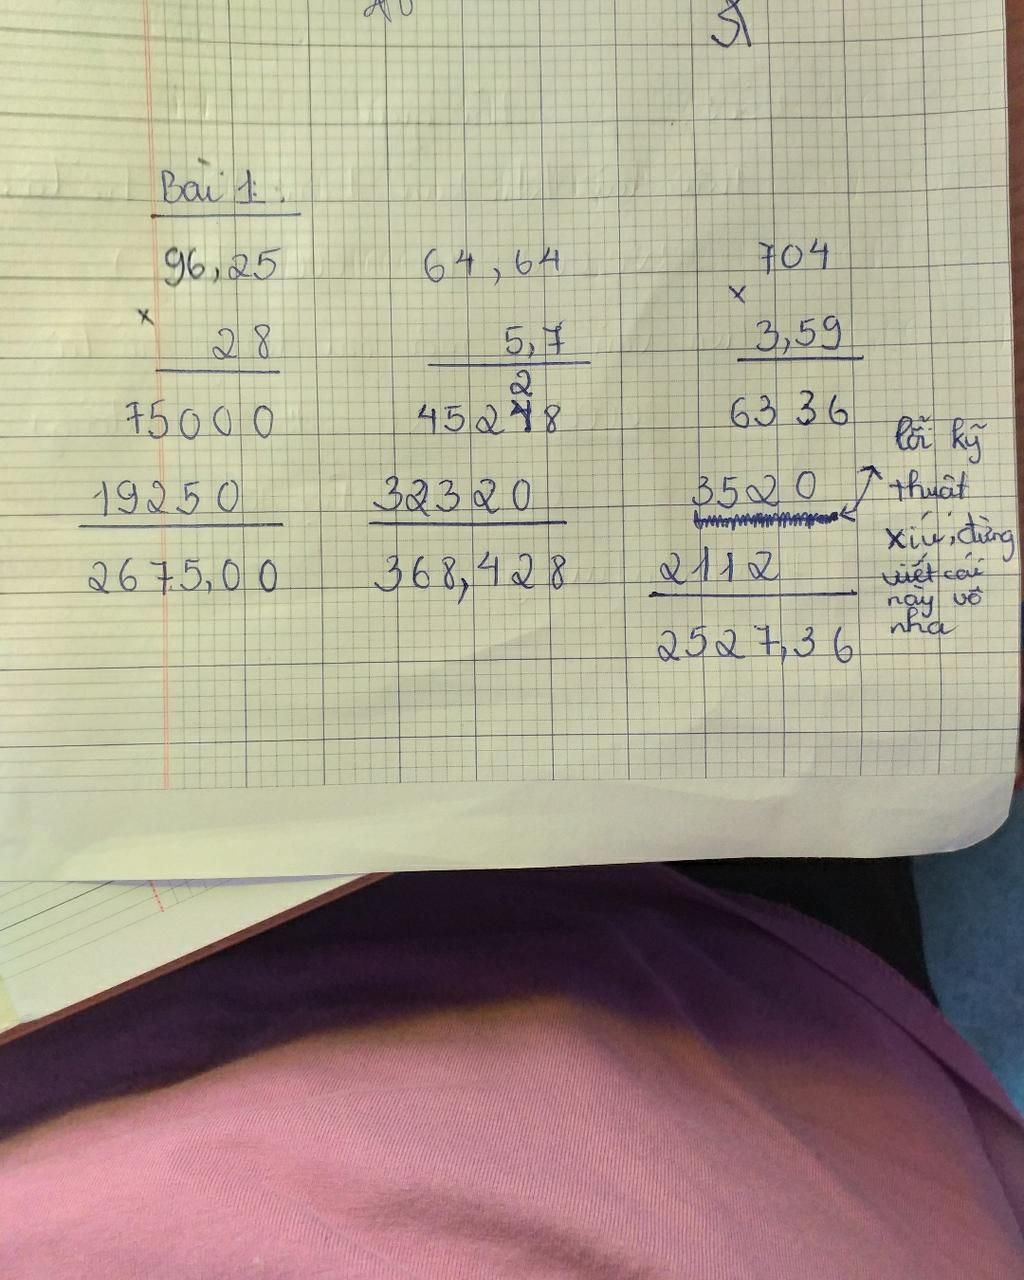 Bài 1:
96,25
x
28
75000
19250
2675,00
64,64
5,7
2
45248
32320
368,428
704
x
3,59
6336
3520
2112
2527,36
lỗi kỹ
thuật
xíu, đừng
viết cái
này vô
nha